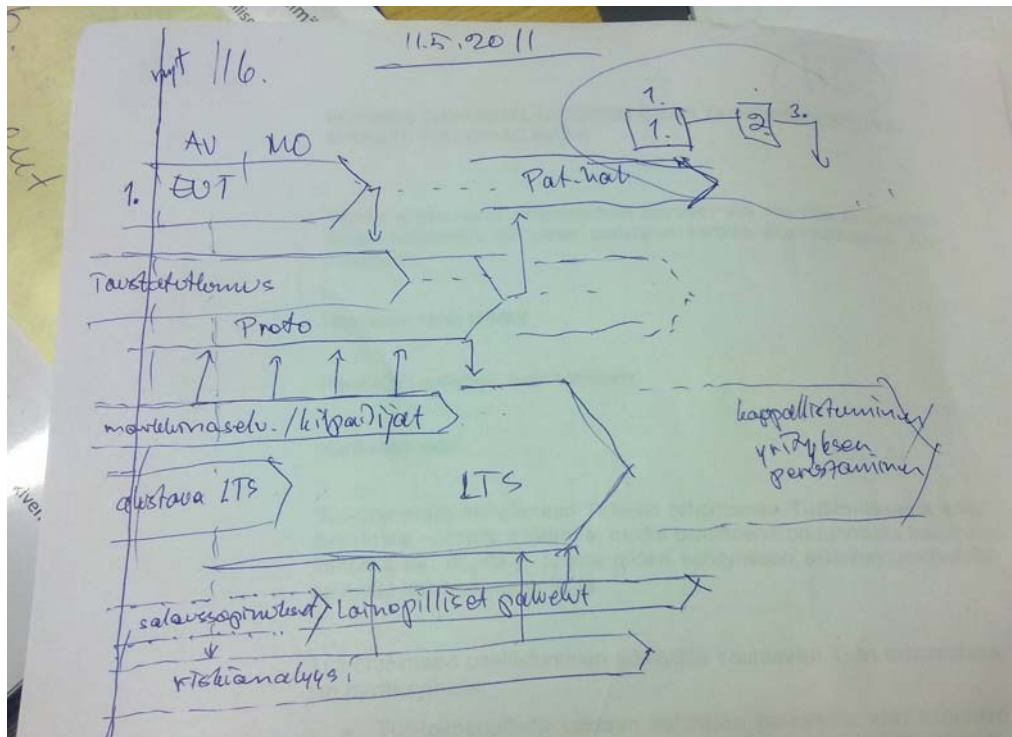 11.5.2011
nyt 116.
AU MO
1. EUT
Pat.hak
1.
1. 2. 3.
Taustatutkimus
Proto
markkinaselv./kilpailijat
alustava LTS
LTS
kaupallistaminen
yrityksen
perustaminen
salaussopimukset Lainopilliset palvelut
riskianalyysi